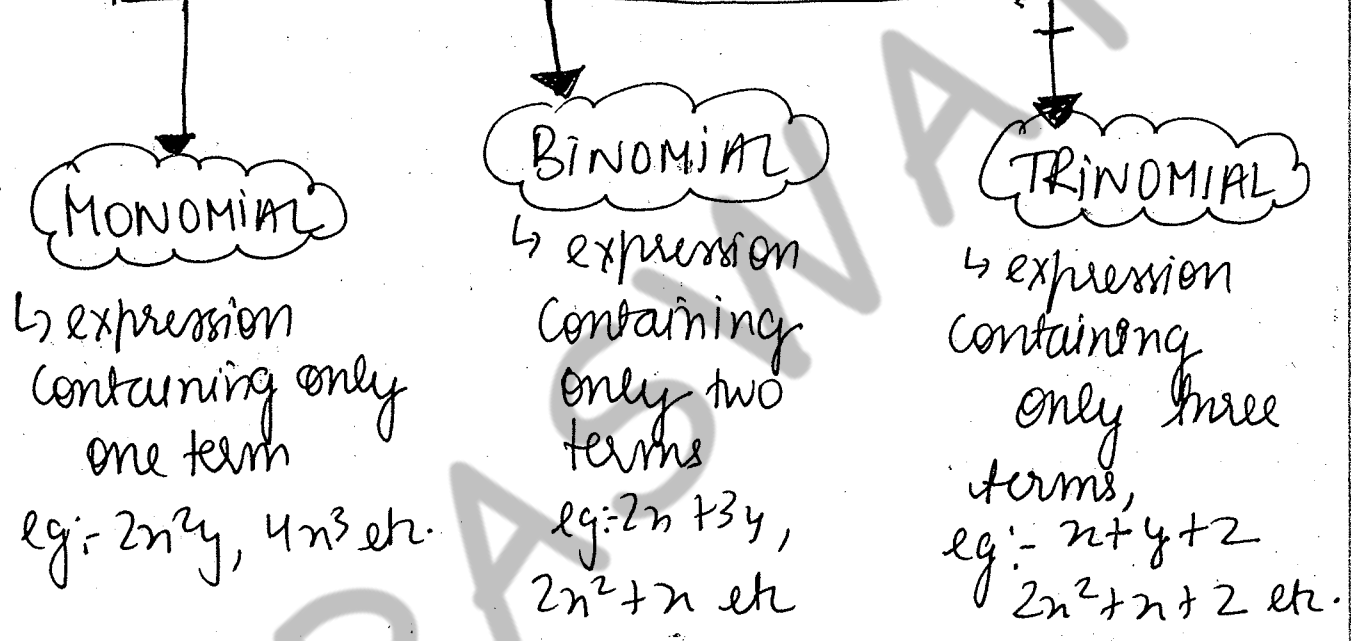 MONOMIAL
↳ expression
containing only
one term
eg:- 2x²y, 4x³ etc.
BINOMIAL
↳ expression
containing
only two
terms
eg:- 2x + 3y,
2x² + x etc
TRINOMIAL
↳ expression
containing
only three
terms,
eg:- x + y + 2
2x² + x + 2 etc.